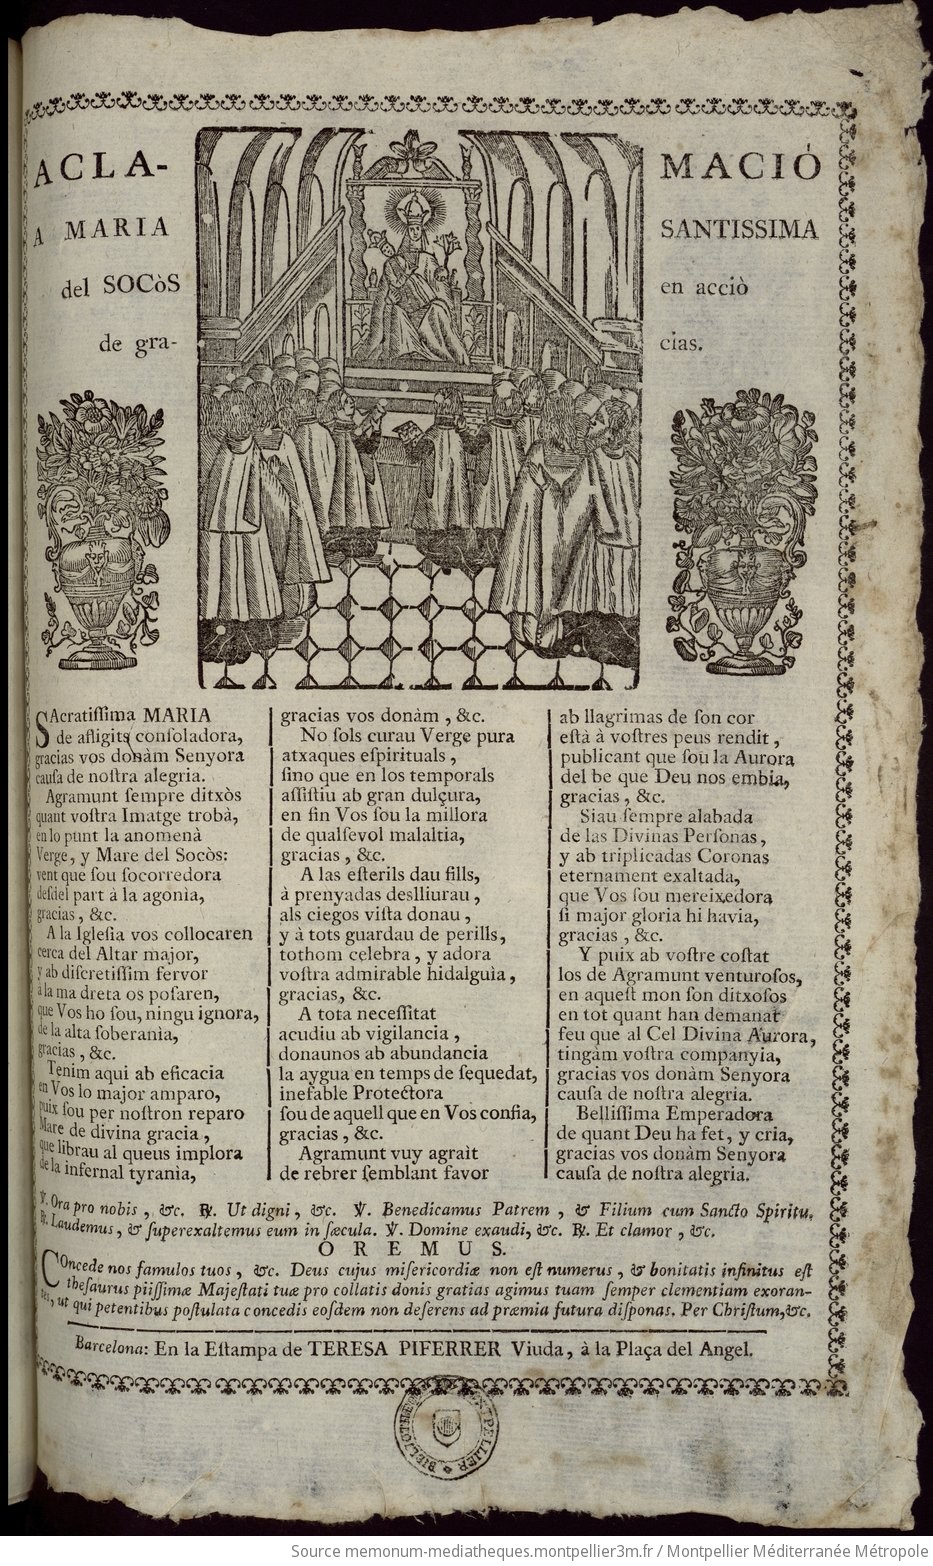 ACLA-
MACIÓ
A MARIA
SANTISSIMA
del SOCòS
en acciò
de gra-
cias.
SAcratiſſima MARIA
de afligits conſoladora,
gracias vos donàm Senyora
cauſa de noſtra alegria.
Agramunt ſempre ditxòs
quant voſtra Imatge trobà,
en lo punt la anomenà
Verge, y Mare del Socòs:
vent que ſou ſocorredora
deſdel part à la agonìa,
gracias, &c.
A la Igleſia vos collocaren
cerca del Altar major,
y ab diſcretiſſim fervor
à la ma dreta os poſaren,
que Vos ho ſou, ningu ignora,
de la alta ſoberanìa,
gracias, &c.
Tenim aqui ab eficacia
en Vos lo major amparo,
puix ſou per noſtron reparo
Mare de divina gracia,
que librau al queus implora
de la infernal tyranìa,
gracias vos donàm, &c.
No ſols curau Verge pura
atxaques eſpirituals,
ſino que en los temporals
aſſiſtiu ab gran dulçura,
en fin Vos ſou la millora
de qualſevol malaltia,
gracias, &c.
A las eſterils dau fills,
à prenyadas deslliurau,
als ciegos viſta donau,
y à tots guardau de perills,
tothom celebra, y adora
voſtra admirable hidalguìa,
gracias, &c.
A tota neceſſitat
acudiu ab vigilancia,
donaunos ab abundancia
la aygua en temps de ſequedat,
inefable Protectora
ſou de aquell que en Vos confia,
gracias, &c.
Agramunt vuy agraìt
de rebrer ſemblant favor
ab llagrimas de ſon cor
eſtà à voſtres peus rendit,
publicant que ſou la Aurora
del be que Deu nos embia,
gracias, &c.
Siau ſempre alabada
de las Divinas Perſonas,
y ab triplicadas Coronas
eternament exaltada,
que Vos ſou mereixedora
ſi major gloria hi havia,
gracias, &c.
Y puix ab voſtre coſtat
los de Agramunt venturoſos,
en aqueſt mon ſon ditxoſos
en tot quant han demanat
feu que al Cel Divina Aurora,
tingàm voſtra companyia,
gracias vos donàm Senyora
cauſa de noſtra alegria.
Belliſſima Emperadora
de quant Deu ha fet, y cria,
gracias vos donàm Senyora
cauſa de noſtra alegria.
℣. Ora pro nobis, &c. ℟. Ut digni, &c. ℣. Benedicamus Patrem, & Filium cum Sancto Spiritu.
℟. Laudemus, & ſuperexaltemus eum in ſæcula. ℣. Domine exaudi, &c. ℟. Et clamor, &c.
OREMUS.
COncede nos famulos tuos, &c. Deus cujus miſericordiæ non eſt numerus, & bonitatis infinitus eſt
theſaurus piiſſimæ Majeſtati tuæ pro collatis donis gratias agimus tuam ſemper clementiam exoran-
tes, ut qui petentibus poſtulata concedis eoſdem non deſerens ad præmia futura diſponas. Per Chriſtum, &c.
Barcelona: En la Eſtampa de TERESA PIFERRER Viuda, à la Plaça del Angel.
Source memonum-mediatheques.montpellier3m.fr / Montpellier Méditerranée Métropole